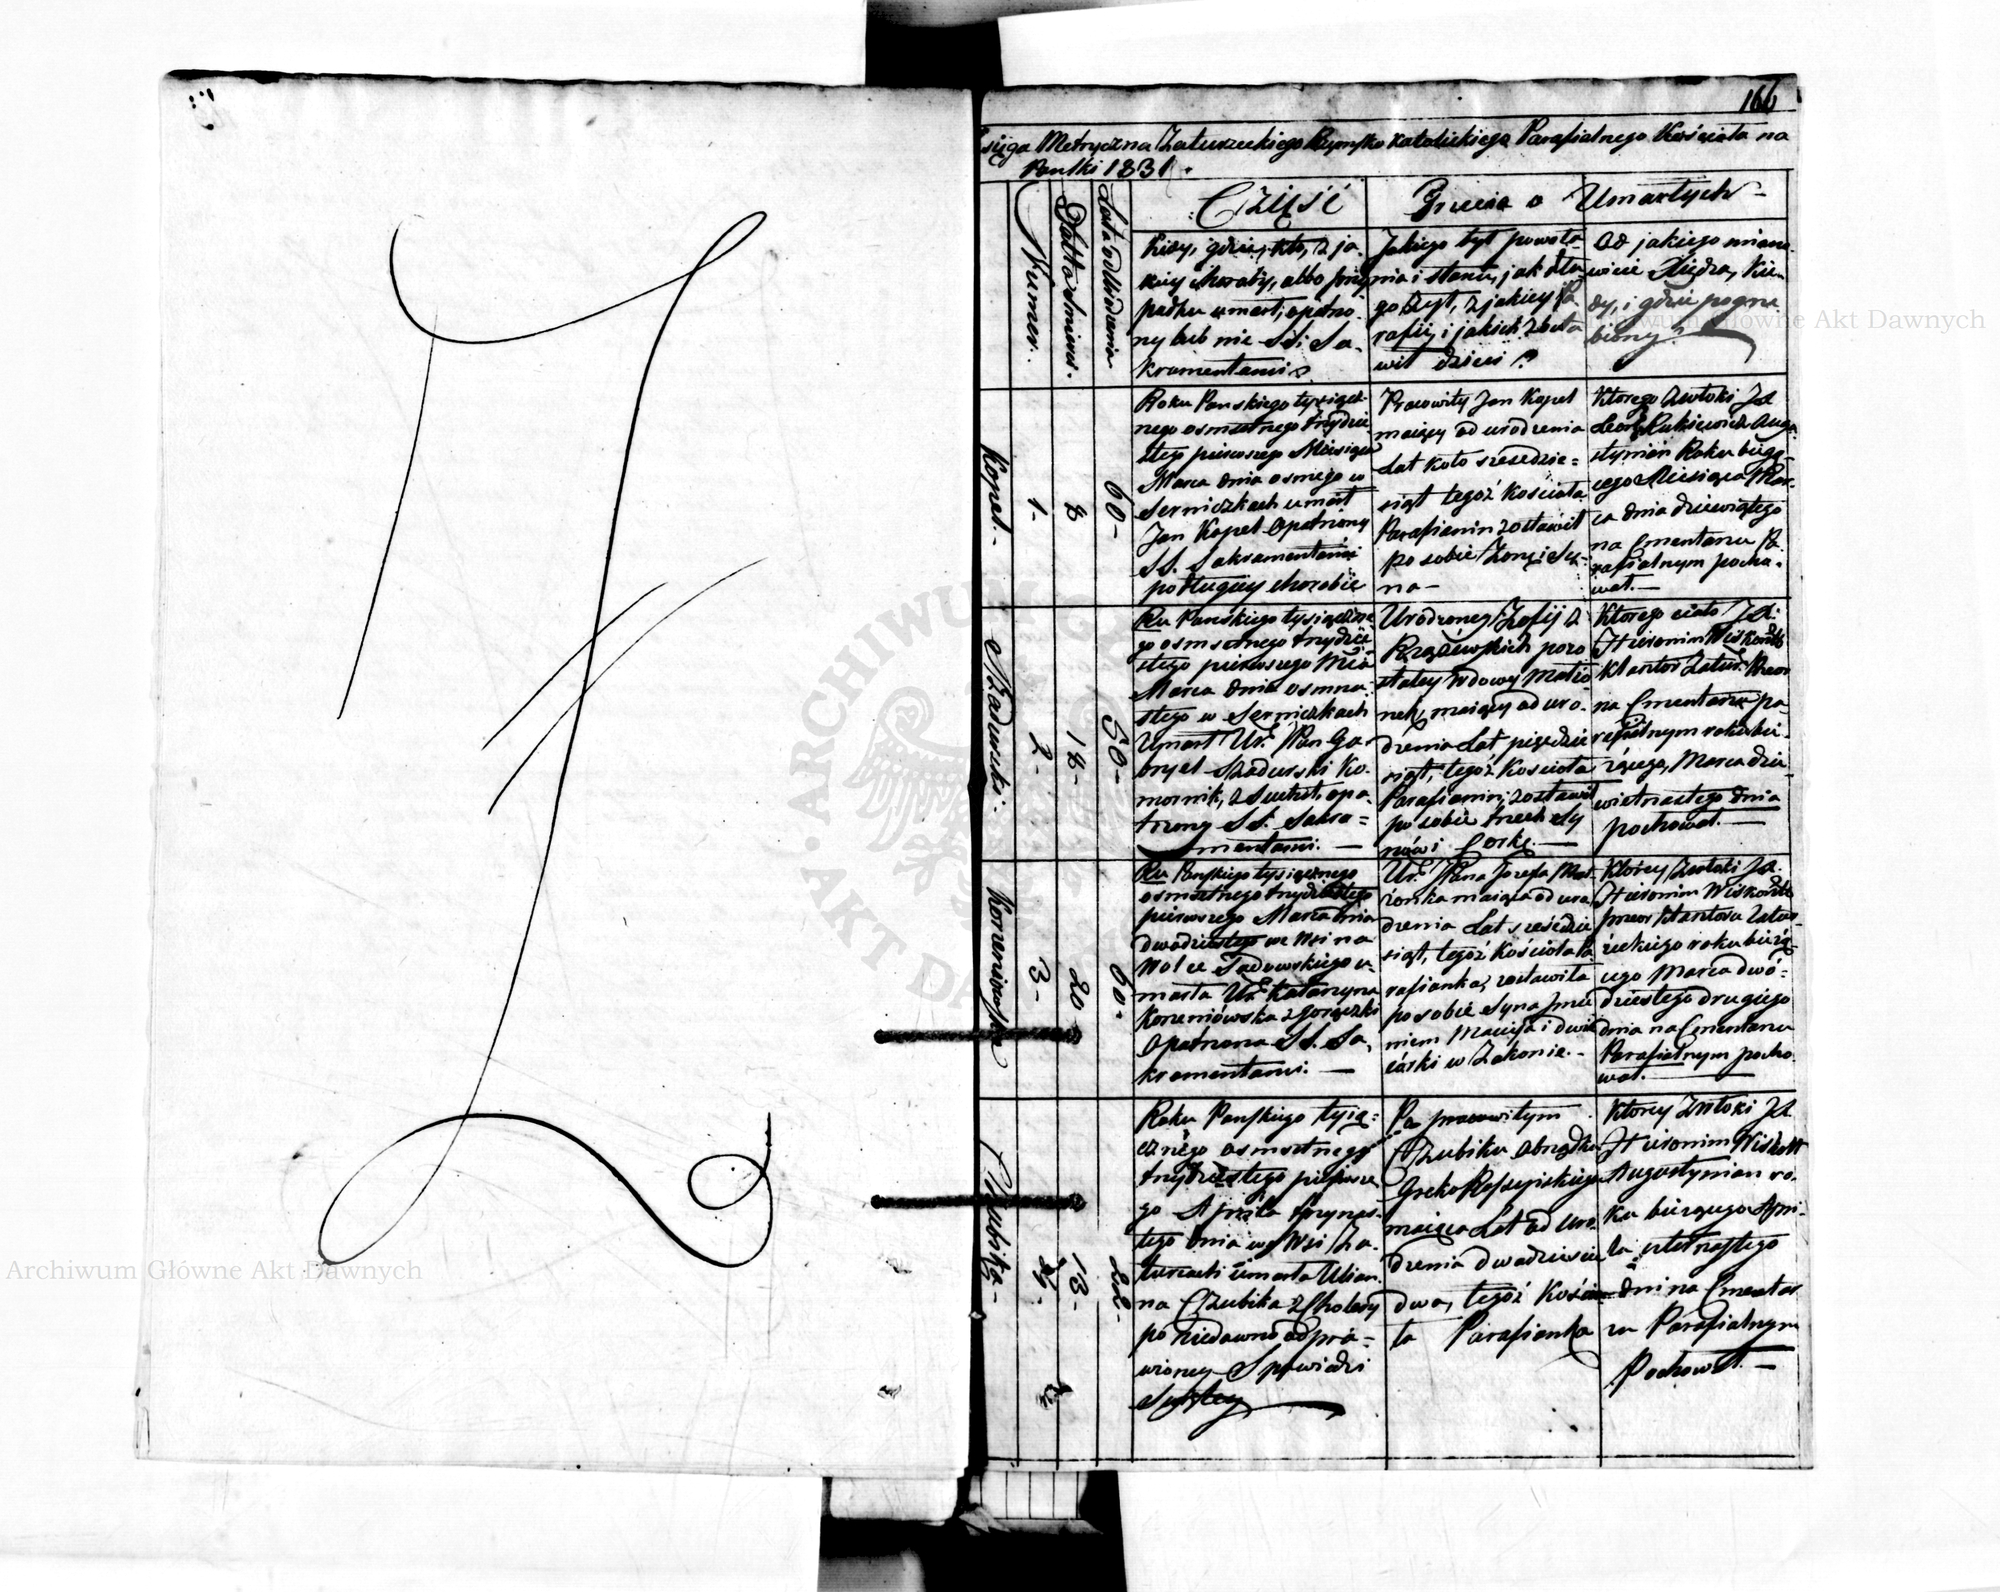 166
Księga Metryczna Zaturzeckiego Rzymsko Katolickiego Parafialnego Kościoła na
Rok 1831.
Część Trzecia o Umarłych
Numer.
Datta Smierci.
Lata od Urodzenia
Kiedy, gdzie, kto, z ja-
kiey choroby, albo przy
padku umarł, opatrzo-
ny lub nie SS. Sa-
kramentami
Jakiego był powoła-
nia i stanu, jak dłu-
go żył, z jakiey Pa
rafii, i jakich zosta
wił dzieci?
Od jakiego miano-
wicie Xiędza, kie-
dy, i gdzie pogrze
biony?
Kopel.-
1-
8
60-
Roku Panskiego tysiącz-
nego osmsetnego trzydzie
stego pierwszego Miesiąca
Marca dnia osmego w
Serniczkach umarł
Jan Kopel Opatrzony
SS. Sakramentami
po długiey chorobie
Pracowity Jan Kopel
maiący od urodzenia
Lat koło szesedzie-
siąt tegoż Kościoła
Parafianin zostawił
po sobie Żonę i Sy-
na-
Ktorego Zwłoki JX
Leon Łuksiewicz Augu-
stynian Roku bieżą-
cego Miesiąca Mar-
ca dnia dziewiątego
na Cmentarzu Pa
rafialnym pocho-
wał.-
Szadurski.
2-
18-
50-
Ru Pańskiego tysiączne
go osmsetnego trzydzie
stego pierwszego Mca
Marca dnia osmna-
stego w Serniczkach
Umarł Ur. Pan Ga-
bryel Szadurski Ko-
mornik, z Suchot, opa-
trzony SS. Sakra-
mentami.-
Urodzoney Zofij z
pozo
staley Wdowy Małżo
nek, maiący od uro-
dzenia Lat pięćdzie
siąt, tegoż Kościoła
Parafianin; zostawił
po sobie trzech Sy
nów i Corkę.-
Ktorego ciało JX.
Hieronim Wiskontt
Klasztor. Zatur. Przeor
na Cmentarzu pa
rafialnym roku bie-
żącego, Marca dzie-
wietnastego dnia
pochował.-
Korzeniowska
3-
20-
60-
Ru Pańskiego tysiącznego
osmsetnego trzydziestego
pierwszego Marca dnia
dwudziestego we Wsi na
Wolce Sadowskiego u-
marła Ur. Katarzyna
Korzeniówska z gorączki
Opatrzona SS. Sa-
kramentami.-
Ur. Pana Jozefa Mał-
żonka maiąca od uro
dzenia Lat sześćdzie
siąt, tegoż Kościoła Pa
rafianka, zostawiła
po sobie Syna Imie
niem Macieja i dwie
córki w Zakonie.-
Ktorey Zwłoki JX.
Hieronim Wiskontt
przeor Klasztoru Zatur-
zeckiego roku bieżą-
cego Marca dwó-
dziestego drugiego
dnia na Cmentarzu
Parafialnym pocho
wał.
Czubika-
4-
13-
22-
Roku Pańskiego tysią-
cznego osmsetnego
trzydziestego pierwsze
go Aprila trzynas-
tego dnia we Wsi Za-
turcach umarła Ulian
na Czubika z Cholery
po niedawno odpra-
wioney Spowiedzi
Po pracowitym
Czubiku obrządku
Greko Rossyiskiego
maiąca Lat od Uro
dzenia dwadzieścia
dwa, tegoż Kościo-
ła Parafianka
Ktorey Zwłoki JX
Hieronim Wiskontt
Augustynian ro-
ku bieżącego Apri-
la czternastego
dni na Cmentar
zu Parafialnym
Pochował.-
Archiwum Główne Akt Dawnych
Archiwum Główne Akt Dawnych
ARCHIWUM GŁ
AKT DA